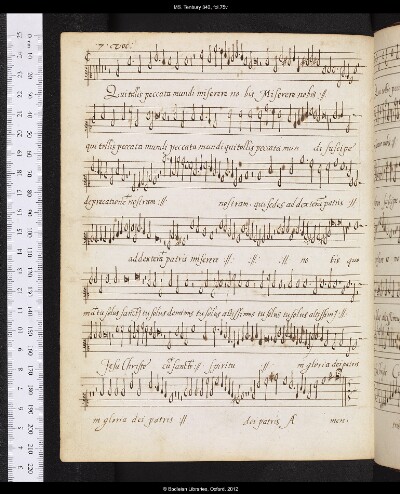 MS. Tenbury 340, fol. 75v
7. voc.
Qui tollis peccata mundi miserere no bis Miserere nobis :||
qui tollis peccata mundi peccata mundi qui tollis peccata mun di suscipe
deprecationē nostram :|| nostram. qui sedes ad dexterā patris :||
ad dexterā patris miserere :|| :|| :|| no bis quo
niā tu solus sanct9 tu solus dominus tu solus altissimus tu solus tu solus altissim9 :||
Jesu Christe cū sancto :|| spiritu :|| in gloria dei patris
in gloria dei patris :|| dei patris A men.
© Bodleian Libraries, Oxford, 2012